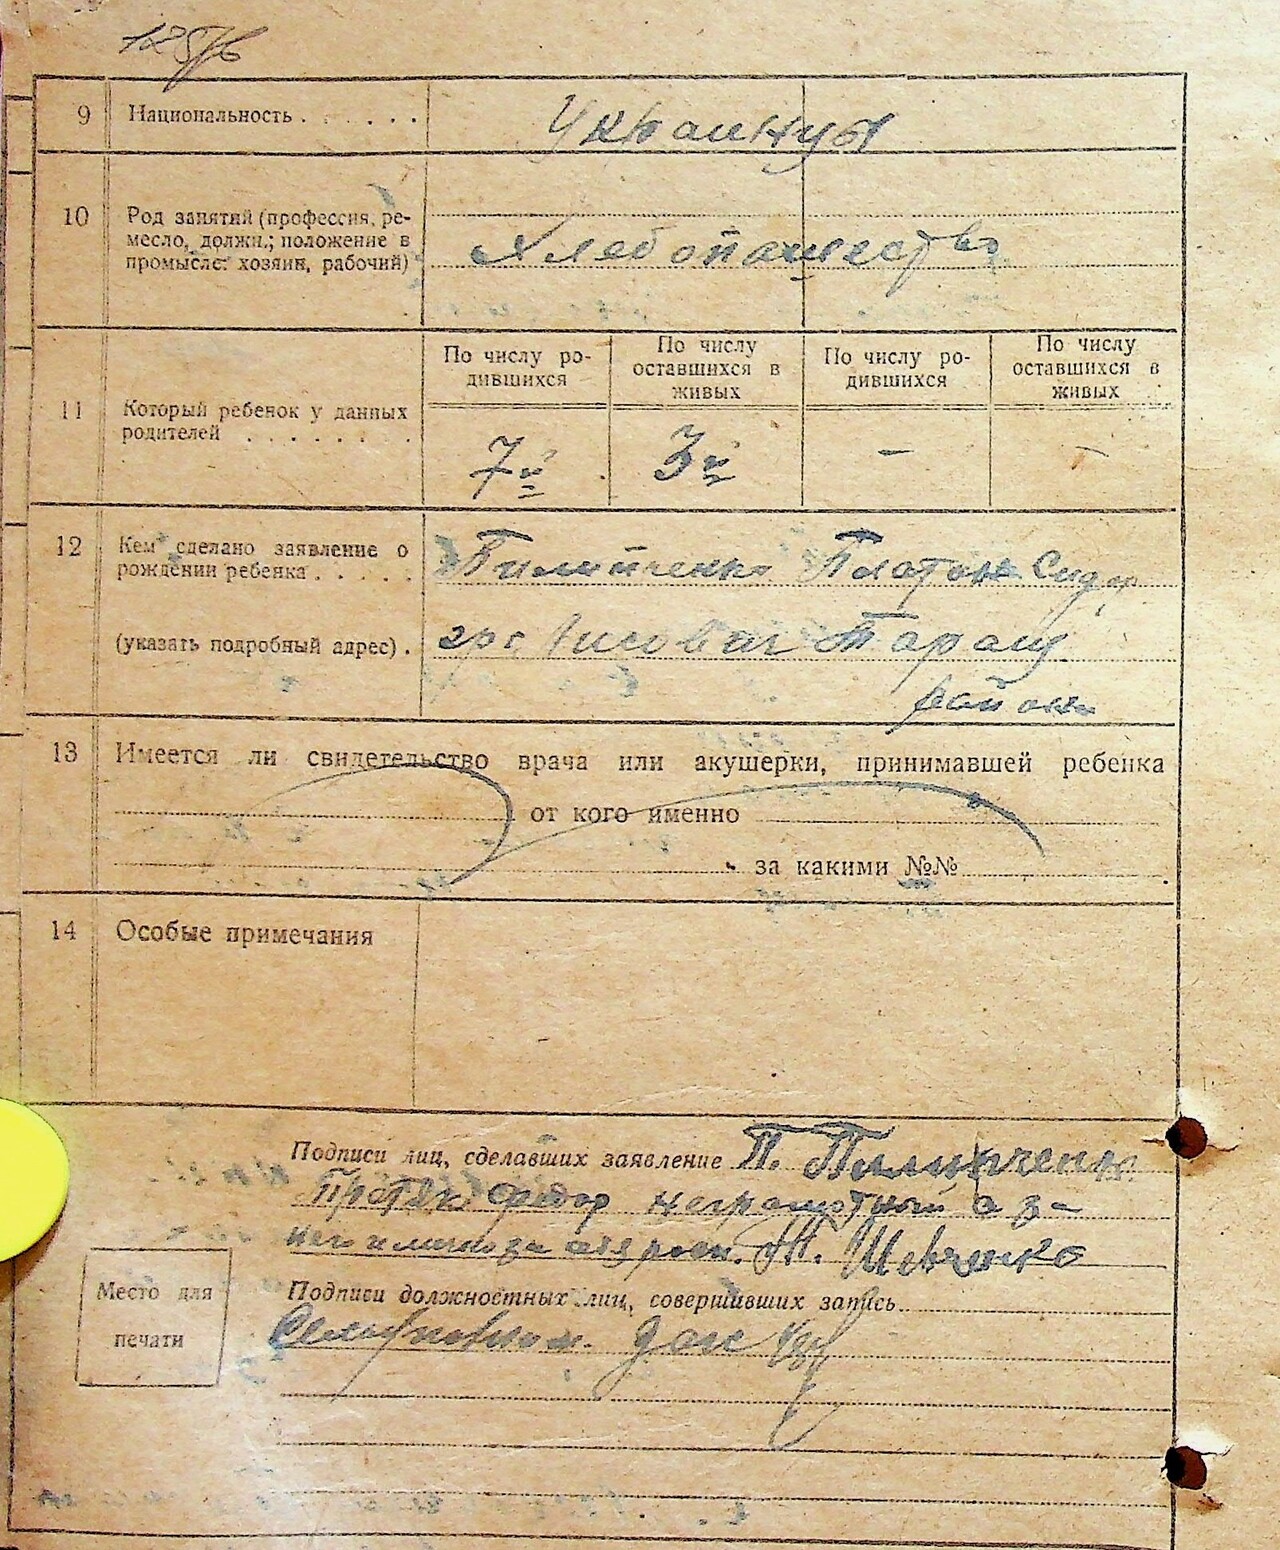 9 Национальность . . . . . . Украинцы
10 Род занятий (профессия, ре-
месло, должн.; положение в
промысле: хозяин, рабочий) Хлебопашество
По числу ро-
дившихся
По числу
оставшихся в
живых
По числу ро-
дившихся
По числу
оставшихся в
живых
11 Который ребенок у данных
родителей . . . . . . . 7й 3й - -
12 Кем сделано заявление о
рождении ребенка . . . . . Пилипченко Платон Сидор
(указать подробный адрес) . гр. Лисович Таращ
района
13 Имеется ли свидетельство врача или акушерки, принимавшей ребенка
от кого именно
за какими №№
14 Особые примечания
Подписи лиц, сделавших заявление П. Пилипченко
неграмотный а за
него Шевченко
Место для
печати
Подписи должностных лиц, совершивших запись